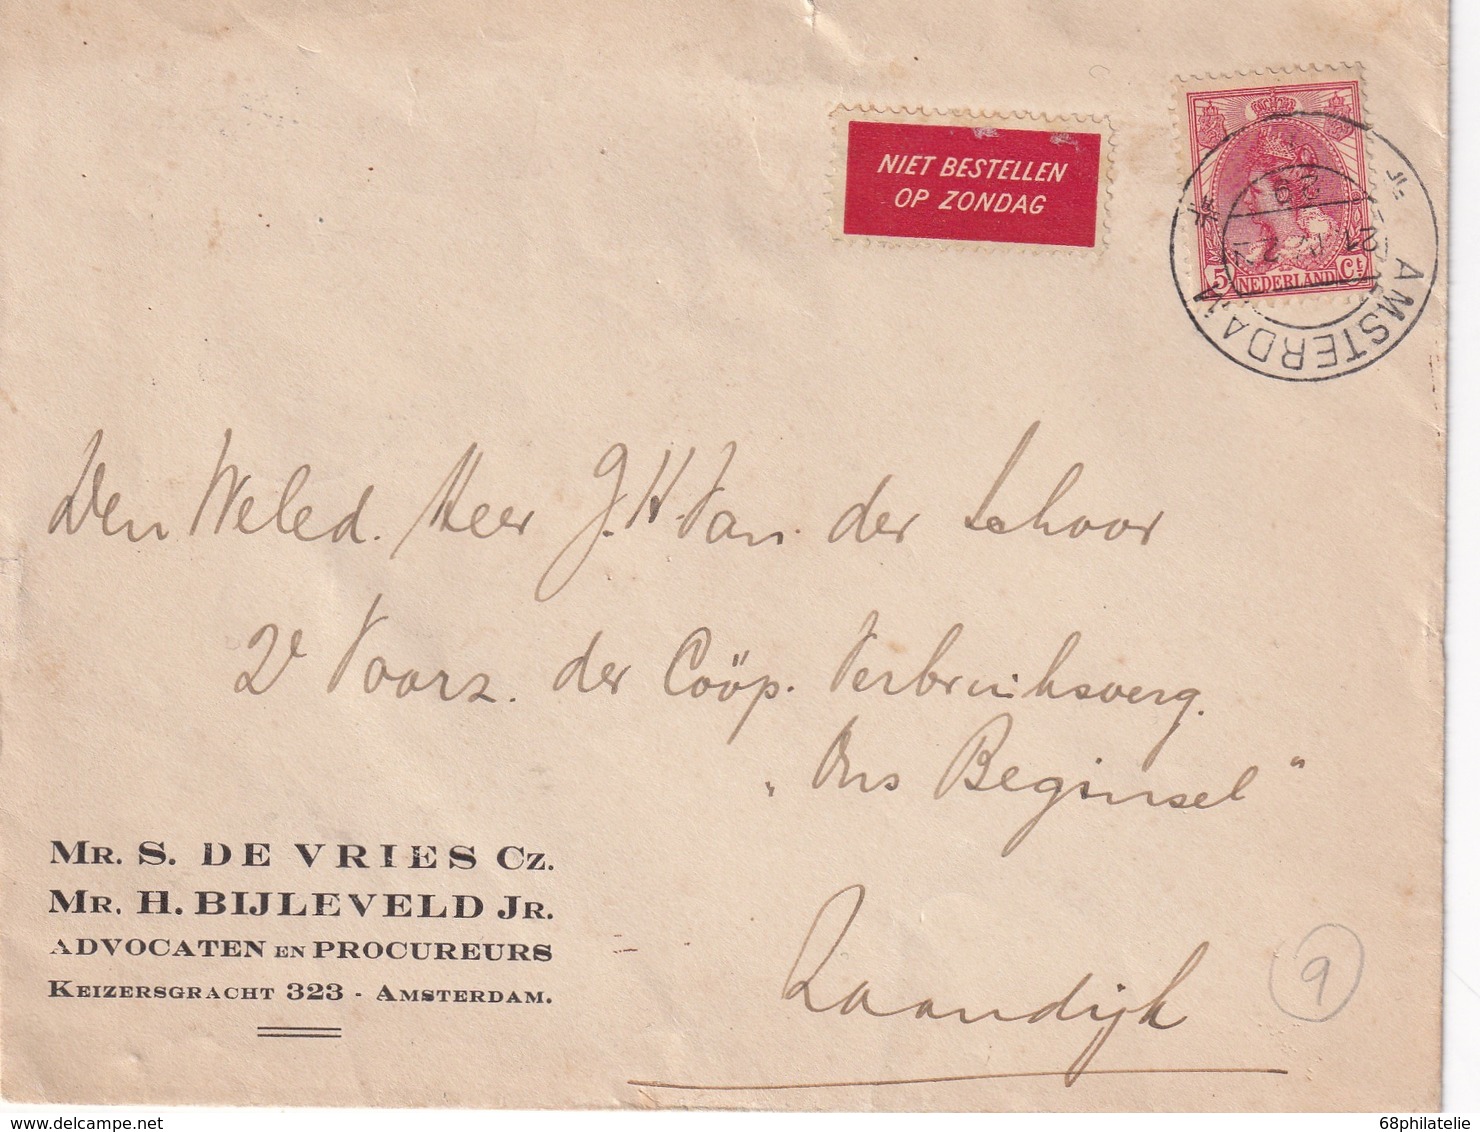 NIET BESTELLEN
OP ZONDAG
5 NEDERLAND Ct
AMSTERDAM
Den Weled. Heer J. H. Van der Schoor
2e Voorz. der Coöp. Verbruiksverg.
"Ons Beginsel"
Zaandijk
MR. S. DE VRIES CZ.
MR. H. BIJLEVELD JR.
ADVOCATEN EN PROCUREURS
KEIZERSGRACHT 323 - AMSTERDAM.
9
68philatelie